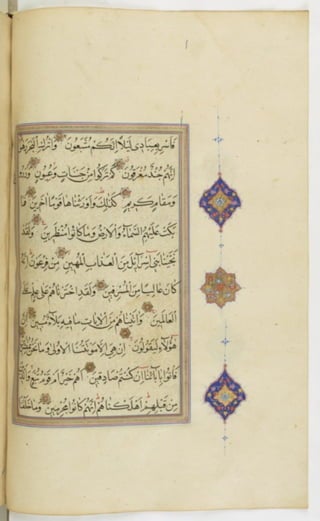 فَاَسْرِ بِعِبَادِى لَيْلًا اِنَّكُمْ مُتَّبَعُونَ وَاتْرُكِ الْبَحْرَ رَهْوًا
اِنَّهُمْ جُنْدٌ مُغْرَقُونَ كَمْ تَرَكُوا مِنْ جَنَّاتٍ وَعُيُونٍ وَزُرُوعٍ
وَمَقَامٍ كَرِيمٍ كَذٰلِكَ وَاَوْرَثْنَاهَا قَوْمًا اٰخَرِينَ فَمَا
بَكَتْ عَلَيْهِمُ السَّمَاءُ وَالْاَرْضُ وَمَا كَانُوا مُنْظَرِينَ وَلَقَدْ
نَجَّيْنَا بَنِى اِسْرَائِلَ مِنَ الْعَذَابِ الْمُهِينِ مِنْ فِرْعَوْنَ اِنَّهُ
كَانَ عَالِيًا مِنَ الْمُسْرِفِينَ وَلَقَدِ اخْتَرْنَاهُمْ عَلٰى عِلْمٍ عَلَى
الْعَالَمِينَ وَاٰتَيْنَاهُمْ مِنَ الْاٰيَاتِ مَا فِيهِ بَلَاءٌ مُبِينٌ اِنَّ
هٰؤُلَاءِ لَيَقُولُونَ اِنْ هِىَ اِلَّا مَوْتَتُنَا الْاُولٰى وَمَا نَحْنُ بِمُنْشَرِينَ
فَاْتُوا بِاٰبَائِنَا اِنْ كُنْتُمْ صَادِقِينَ اَهُمْ خَيْرٌ اَمْ قَوْمُ تُبَّعٍ وَالَّذِينَ
مِنْ قَبْلِهِمْ اَهْلَكْنَاهُمْ اِنَّهُمْ كَانُوا مُجْرِمِينَ وَمَا خَلَقْنَا